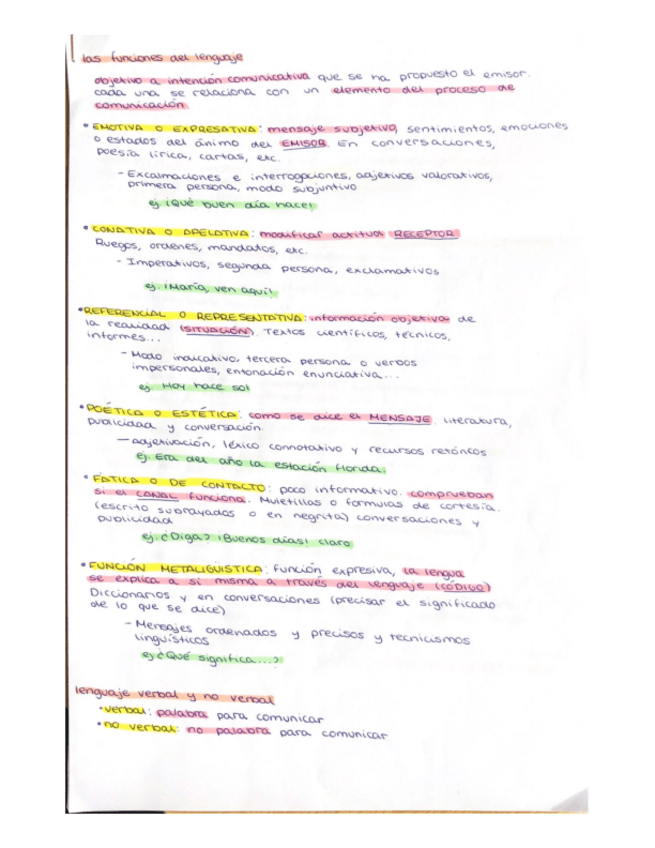 las funciones del lenguaje
objetivo o intención comunicativa que se ha propuesto el emisor.
cada una se relaciona con un elemento del proceso de
comunicación.
• EMOTIVA O EXPRESATIVA: mensaje subjetivo, sentimientos, emociones
o estados del ánimo del EMISOR. En conversaciones,
poesía lírica, cartas, etc.
- Excalmaciones e interrogaciones, adjetivos valorativos,
primera persona, modo subjuntivo
ej. ¡Qué buen día hace!
• CONATIVA O APELATIVA: modificar actitud RECEPTOR
Ruegos, ordenes, mandatos, etc.
- Imperativos, segunda persona, exclamativos
ej. ¡María, ven aquí!
• REFERENCIAL O REPRESENTATIVA: información objetiva de
la realidad (SITUACIÓN). Textos científicos, técnicos,
informes...
- Modo indicativo, tercera persona o verbos
impersonales, entonación enunciativa...
ej. Hoy hace sol
• POÉTICA O ESTÉTICA: como se dice el MENSAJE. literatura,
publicidad y conversación.
- adjetivación, léxico connotativo y recursos retóricos
ej. Era del año la estación florida.
• FÁTICA O DE CONTACTO: poco informativo. comprueban
si el CANAL funciona. Muletillas o formulas de cortesía.
(escrito subrayados o en negrita) conversaciones y
publicidad
ej. ¿Diga? ¡Buenos días! claro
• FUNCIÓN METALIGUISTICA: función expresiva, la lengua
se explica a si misma a través del lenguaje (CÓDIGO)
Diccionarios y en conversaciones (precisar el significado
de lo que se dice)
- Mensajes ordenados y precisos y tecnicismos
lingüísticos
ej ¿Qué significa...?
lenguaje verbal y no verbal
• verbal: palabra para comunicar
• no verbal: no palabra para comunicar